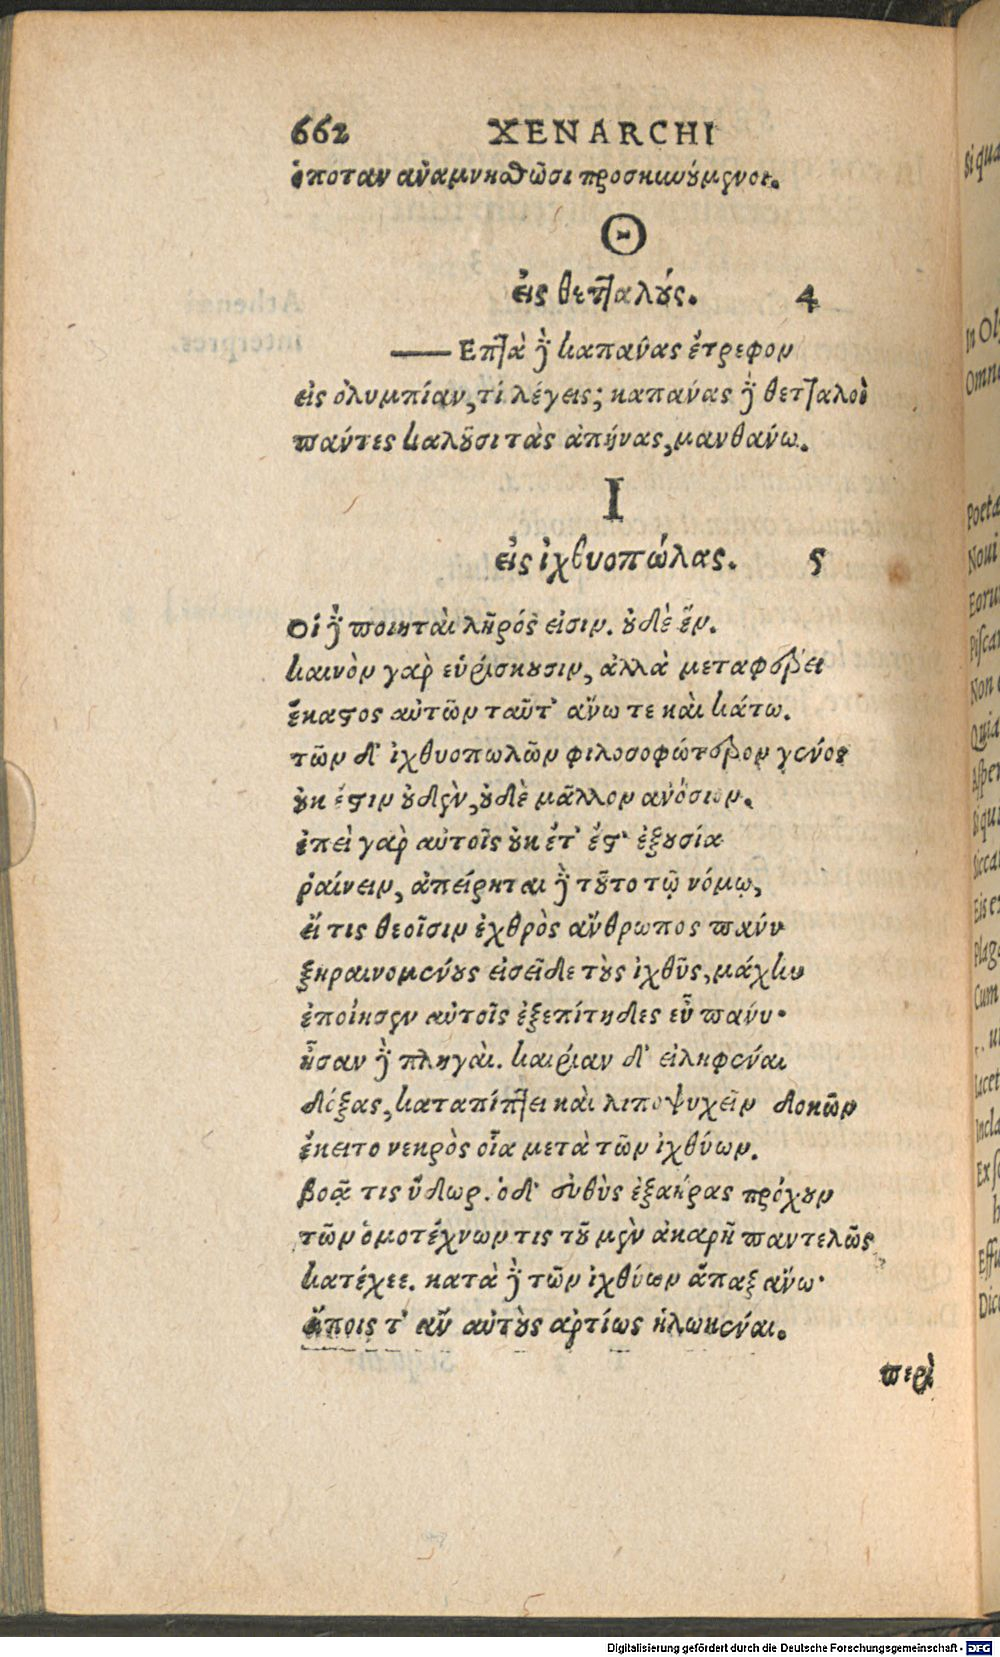 662 XENARCHI
ὁπόταν ἀναμνησθῶσι προσκινούμενοι.
Θ
εἰς θετταλούς. 4
— Επτὰ δὲ καπάνας ἔτρεφον
εἰς ὀλυμπίαν, τί λέγεις; καπάνας δὲ θετταλοὶ
πάντες καλοῦσι τὰς ἀπήνας, μανθάνω.
Ι
εἰς ἰχθυοπώλας. 5
Οἱ δὲ ποιηταὶ λῆρός εἰσιν. οὐδὲ ἓν.
καινὸν γὰρ εὑρίσκουσιν, ἀλλὰ μεταφέρει
ἕκαστος αὐτῶν ταῦτ' ἄνω τε καὶ κάτω.
τῶν δ' ἰχθυοπωλῶν φιλοσοφώτερον γένος
οὐκ ἔστιν οὐδὲν, οὐδὲ μᾶλλον ἀνόσιον.
ἐπεὶ γὰρ αὐτοῖς οὐκ ἔτ' ἔστ' ἐξουσία
ῥαίνειν, ἀπείρηται δὲ τοῦτο τῷ νόμῳ,
εἴ τις θεοῖσιν ἐχθρὸς ἄνθρωπος πάνυ
ξηραινομένους εἰσεῖδε τοὺς ἰχθῦς, μάχην
ἐποίησεν αὐτοῖς ἐξεπίτηδες εὖ πάνυ·
ἦσαν δὲ πληγαὶ. καιρίαν δ' εἰληφέναι
δόξας, καταπίπτει καὶ λιποψυχεῖν δοκῶν
ἔκειτο νεκρὸς οἷα μετὰ τῶν ἰχθύων.
βοᾷ τις ὕδωρ. ὁ δ' εὐθὺς ἐξαήρας πρόχουν
τῶν ὁμοτέχνων τις τοῦ μὲν ἀκαρῆ παντελῶς
κατέχεε. κατὰ δὲ τῶν ἰχθύων ἅπαξ ἄνω·
εἴποις τ' ἂν αὐτοὺς ἀρτίως ἡλωκέναι.
περὶ
Digitalisierung gefördert durch die Deutsche Forschungsgemeinschaft - DFG